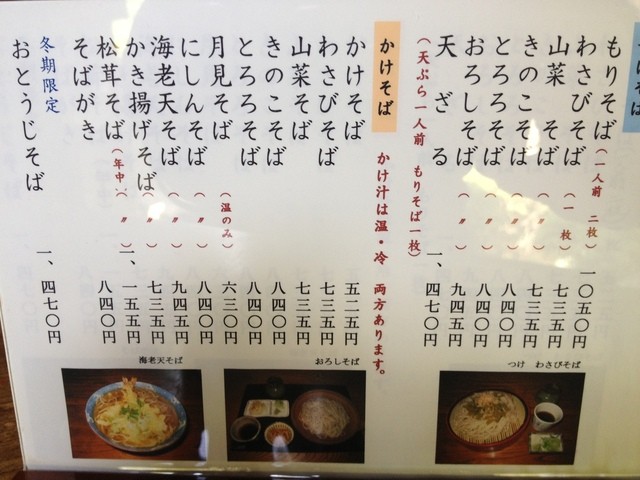 けそば
もりそば（一人前 二枚） 一〇五〇円
わさびそば（一枚） 七三五円
山菜そば（〃） 七三五円
きのこそば（〃） 八四〇円
とろろそば（〃） 八四〇円
おろしそば（〃） 九四五円
天ざる 一、四七〇円
（天ぷら一人前 もりそば一枚）
かけそば かけ汁は温・冷 両方あります。
かけそば 五二五円
わさびそば 七三五円
山菜そば 七三五円
きのこそば 八四〇円
とろろそば 八四〇円
月見そば（温のみ） 六三〇円
にしんそば（〃） 八四〇円
海老天そば（〃） 九四五円
かき揚げそば（〃） 七三五円
松茸そば（年中〃） 一、一五五円
そばがき 八四〇円
冬期限定
おとうじそば 一、四七〇円
つけ わさびそば
おろしそば
海老天そば